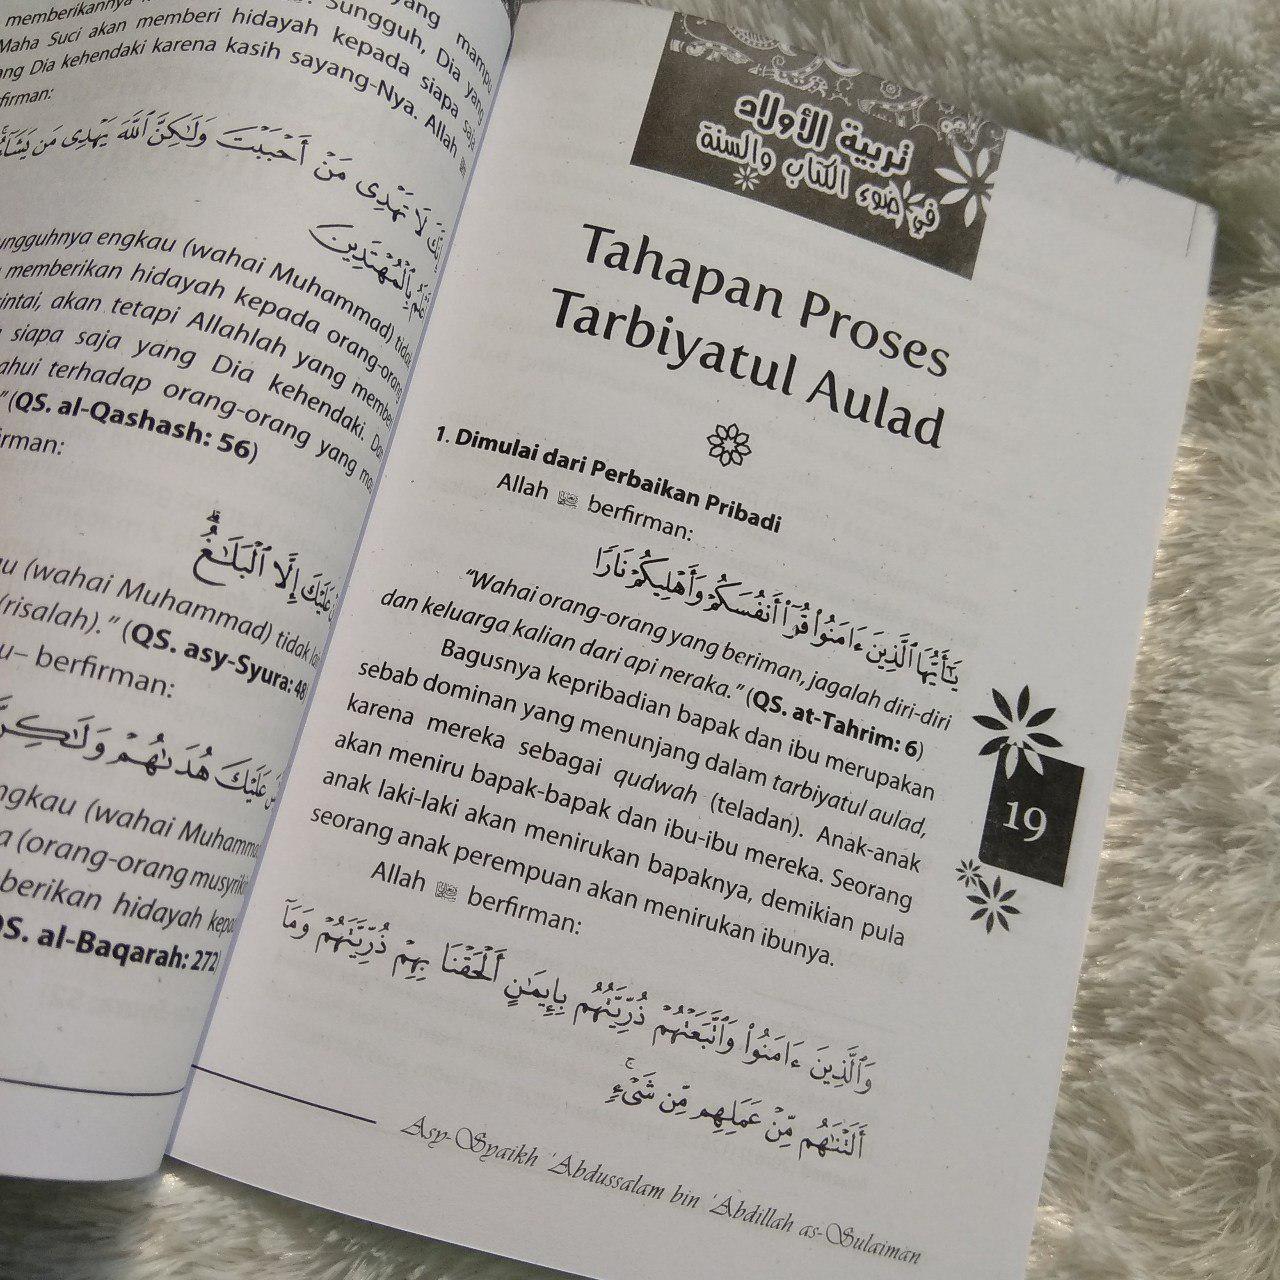 memberikannya
yang mampu
Sungguh, Dia yang
Maha Suci akan memberi hidayah kepada siapa saja
yang Dia kehendaki karena kasih sayang-Nya. Allah ﷻ
firman:
لَا تَهْدِى مَنْ أَحْبَبْتَ وَلَٰكِنَّ ٱللَّهَ يَهْدِى مَن يَشَآءُ
بِٱلْمُهْتَدِينَ
engkau (wahai Muhammad) tidak
memberikan hidayah kepada orang-orang
akan tetapi Allahlah yang member
siapa saja yang Dia kehendaki. Dan
terhadap orang-orang yang ma
(QS. al-Qashash: 56)
firman:
عَلَيْكَ إِلَّا ٱلْبَلَٰغُ
(wahai Muhammad) tidak lain
(risalah)." (QS. asy-Syura: 48
berfirman:
عَلَيْكَ هُدَىٰهُمْ وَلَٰكِنَّ
engkau (wahai Muhamma
(orang-orang musyrikin
berikan hidayah kepa
QS. al-Baqarah: 272
تربية الأولاد
في ضوء الكتاب والسنة
Tahapan Proses
Tarbiyatul Aulad
1. Dimulai dari Perbaikan Pribadi
Allah ﷻ berfirman:
يَٰٓأَيُّهَا ٱلَّذِينَ ءَامَنُوا۟ قُوٓا۟ أَنفُسَكُمْ وَأَهْلِيكُمْ نَارًا
"Wahai orang-orang yang beriman, jagalah diri-diri
dan keluarga kalian dari api neraka." (QS. at-Tahrim: 6)
Bagusnya kepribadian bapak dan ibu merupakan
sebab dominan yang menunjang dalam tarbiyatul aulad,
karena mereka sebagai qudwah (teladan). Anak-anak
akan meniru bapak-bapak dan ibu-ibu mereka. Seorang
anak laki-laki akan menirukan bapaknya, demikian pula
seorang anak perempuan akan menirukan ibunya.
Allah ﷻ berfirman:
وَٱلَّذِينَ ءَامَنُوا۟ وَٱتَّبَعَتْهُمْ ذُرِّيَّتُهُم بِإِيمَٰنٍ أَلْحَقْنَا بِهِمْ ذُرِّيَّتَهُمْ وَمَآ
أَلَتْنَٰهُم مِّنْ عَمَلِهِم مِّن شَىْءٍ ۚ
19
Asy-Syaikh 'Abdussalam bin 'Abdillah as-Sulaiman